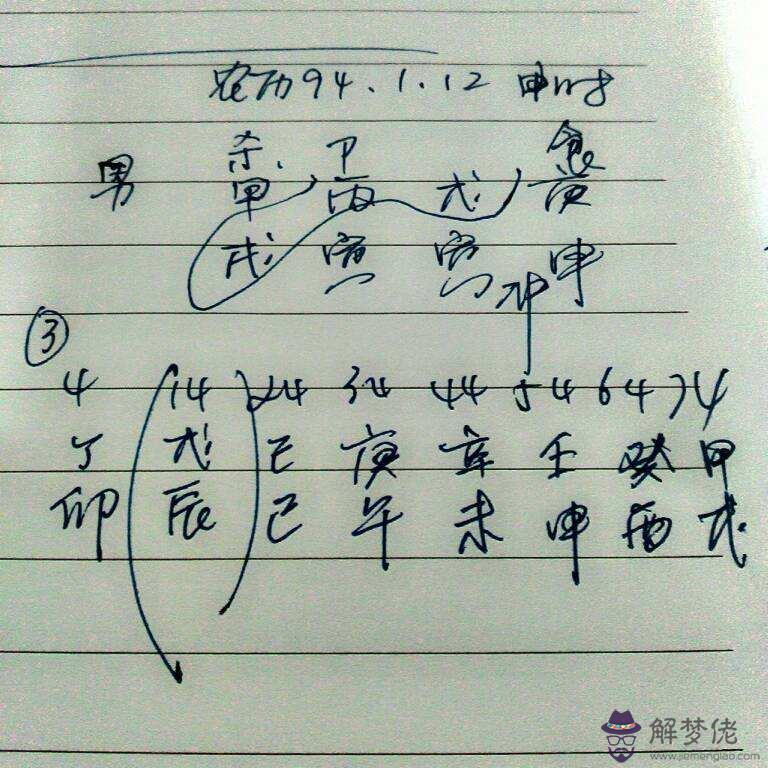 农历94.1.12 申时
杀. P 食
男 甲 丙 戊 庚
戌 寅 寅 申
冲
③
4 14 24 34 44 54 64 74
丁 戊 己 庚 辛 壬 癸 甲
卯 辰 巳 午 未 申 酉 戌
解梦佬
www.jiemenglao.com